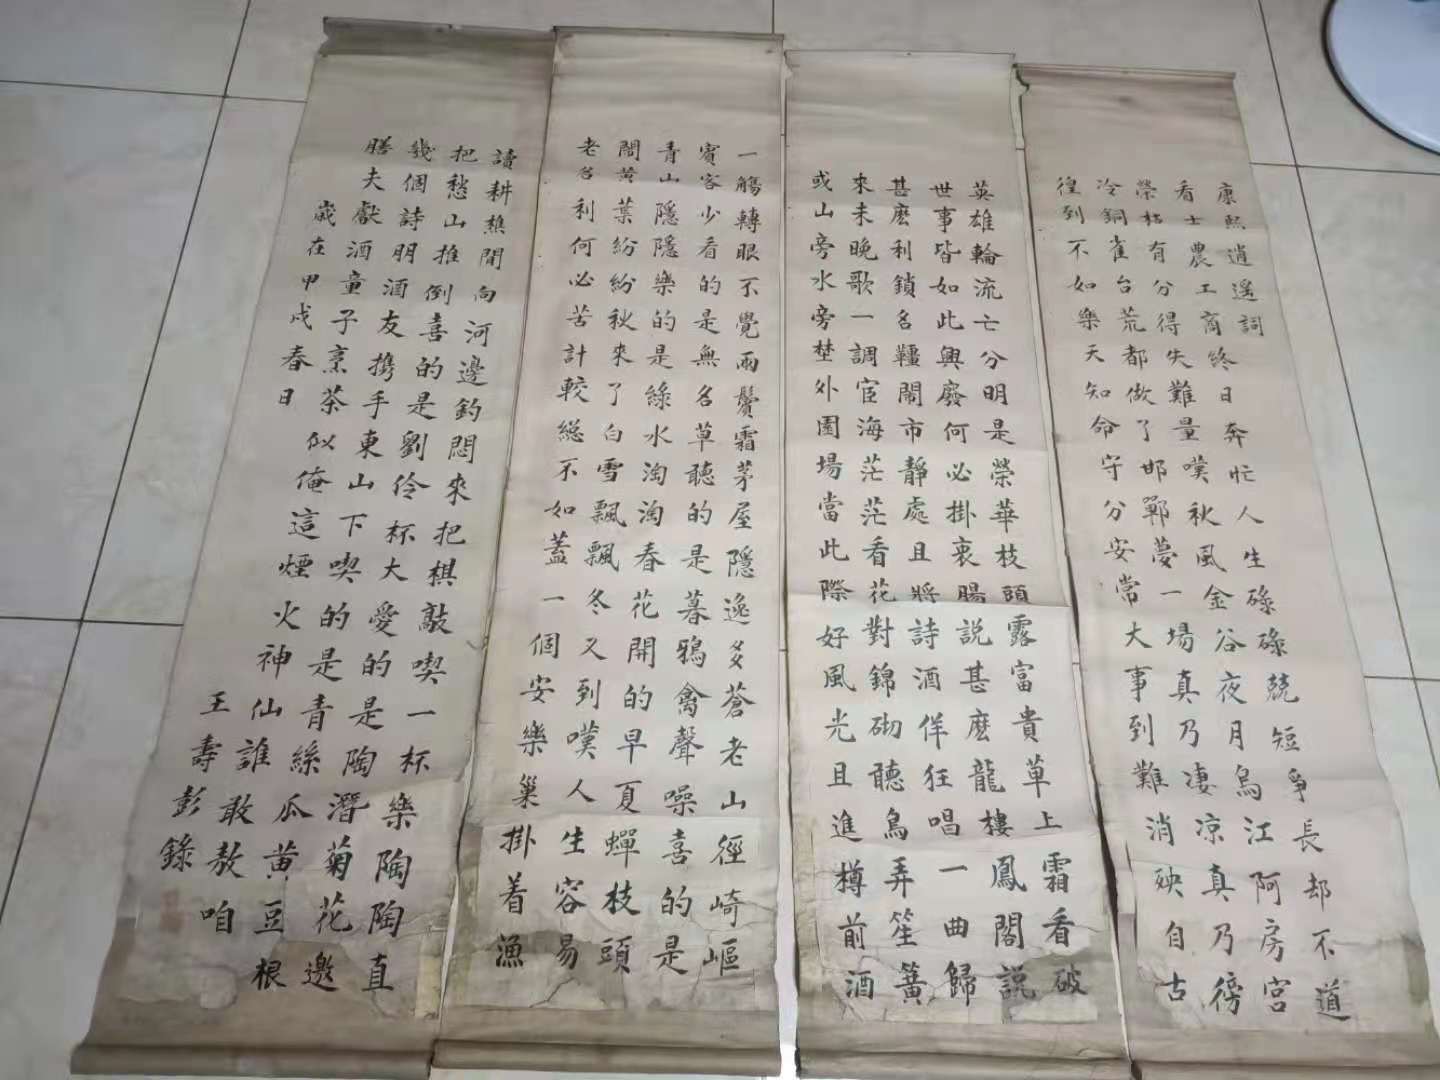 康熙逍遙詞
看士農工商終日奔忙人生碌碌競短爭長却不道
榮枯有分得失難量嘆秋風金谷夜月烏江阿房宮
冷銅雀台荒都做了邯鄲夢一場真乃凄凉真乃徬
徨到不如樂天知命守分安常大事到難消殃自古
英雄輪流亡分明是榮華枝頭露富貴草上霜看破
世事皆如此興廢何必掛衷腸說甚麽龍樓鳳閣說
甚麽利鎖名韁鬧市靜處且將詩酒佯狂唱一曲歸
來未晚歌一調宦海茫茫看花對錦砌聽鳥弄笙簧
或山旁水旁埜外園場當此際好風光且進樽前酒
一觴轉眼不覺兩鬢霜茅屋隱逸多蒼老山徑崎嶇
賓客少看的是無名草聽的是暮鴉禽聲噪喜的是
青山隱隱樂的是綠水淘淘春花開的早夏蟬枝頭
鬧黃葉紛紛秋來了白雪飄飄冬又到嘆人生容易
老名利何必苦計較總不如蓋一個安樂巢掛着漁
讀耕樵閒向河邊釣悶來把棋敲喫一杯樂陶陶直
把愁山推倒喜的是劉伶杯大愛的是陶潛菊花邀
幾個詩朋酒友携手東山下喫的是青絲瓜黃豆根
膳夫獻酒童子烹茶似俺這煙火神仙誰敢敖咱
歲在甲戌春日
王壽彭錄